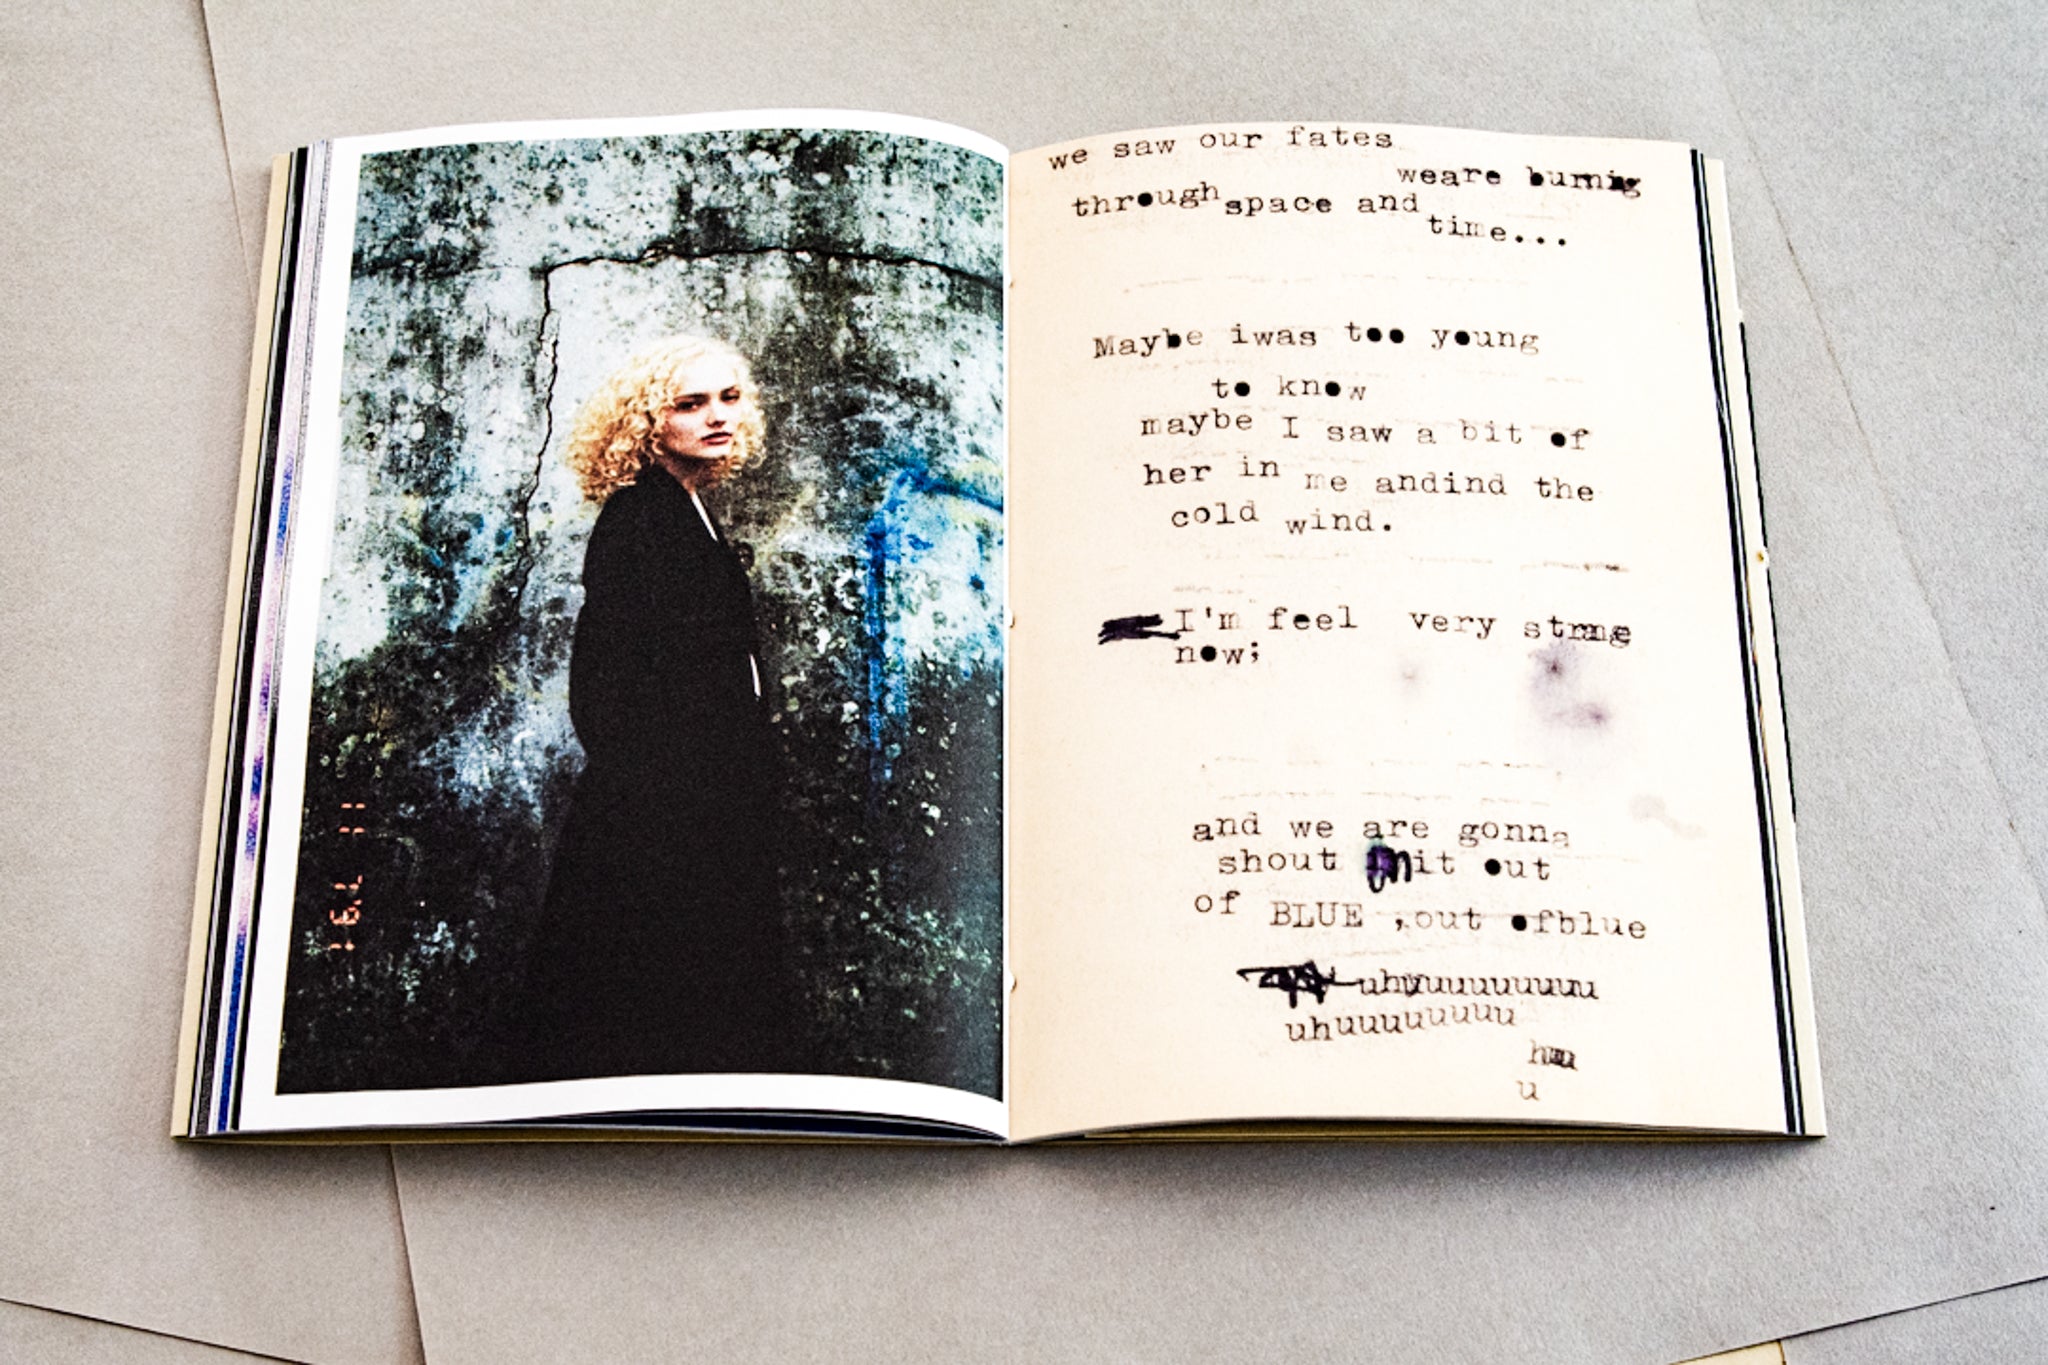 we saw our fates
weare burning
through space and
time...
Maybe iwas too young
to know
maybe I saw a bit of
her in me andind the
cold wind.
I'm feel very strang
now;
and we are gonna
shout it out
of BLUE ,out ofblue
uhuuuuuuuuu
uhuuuuuuuu
u